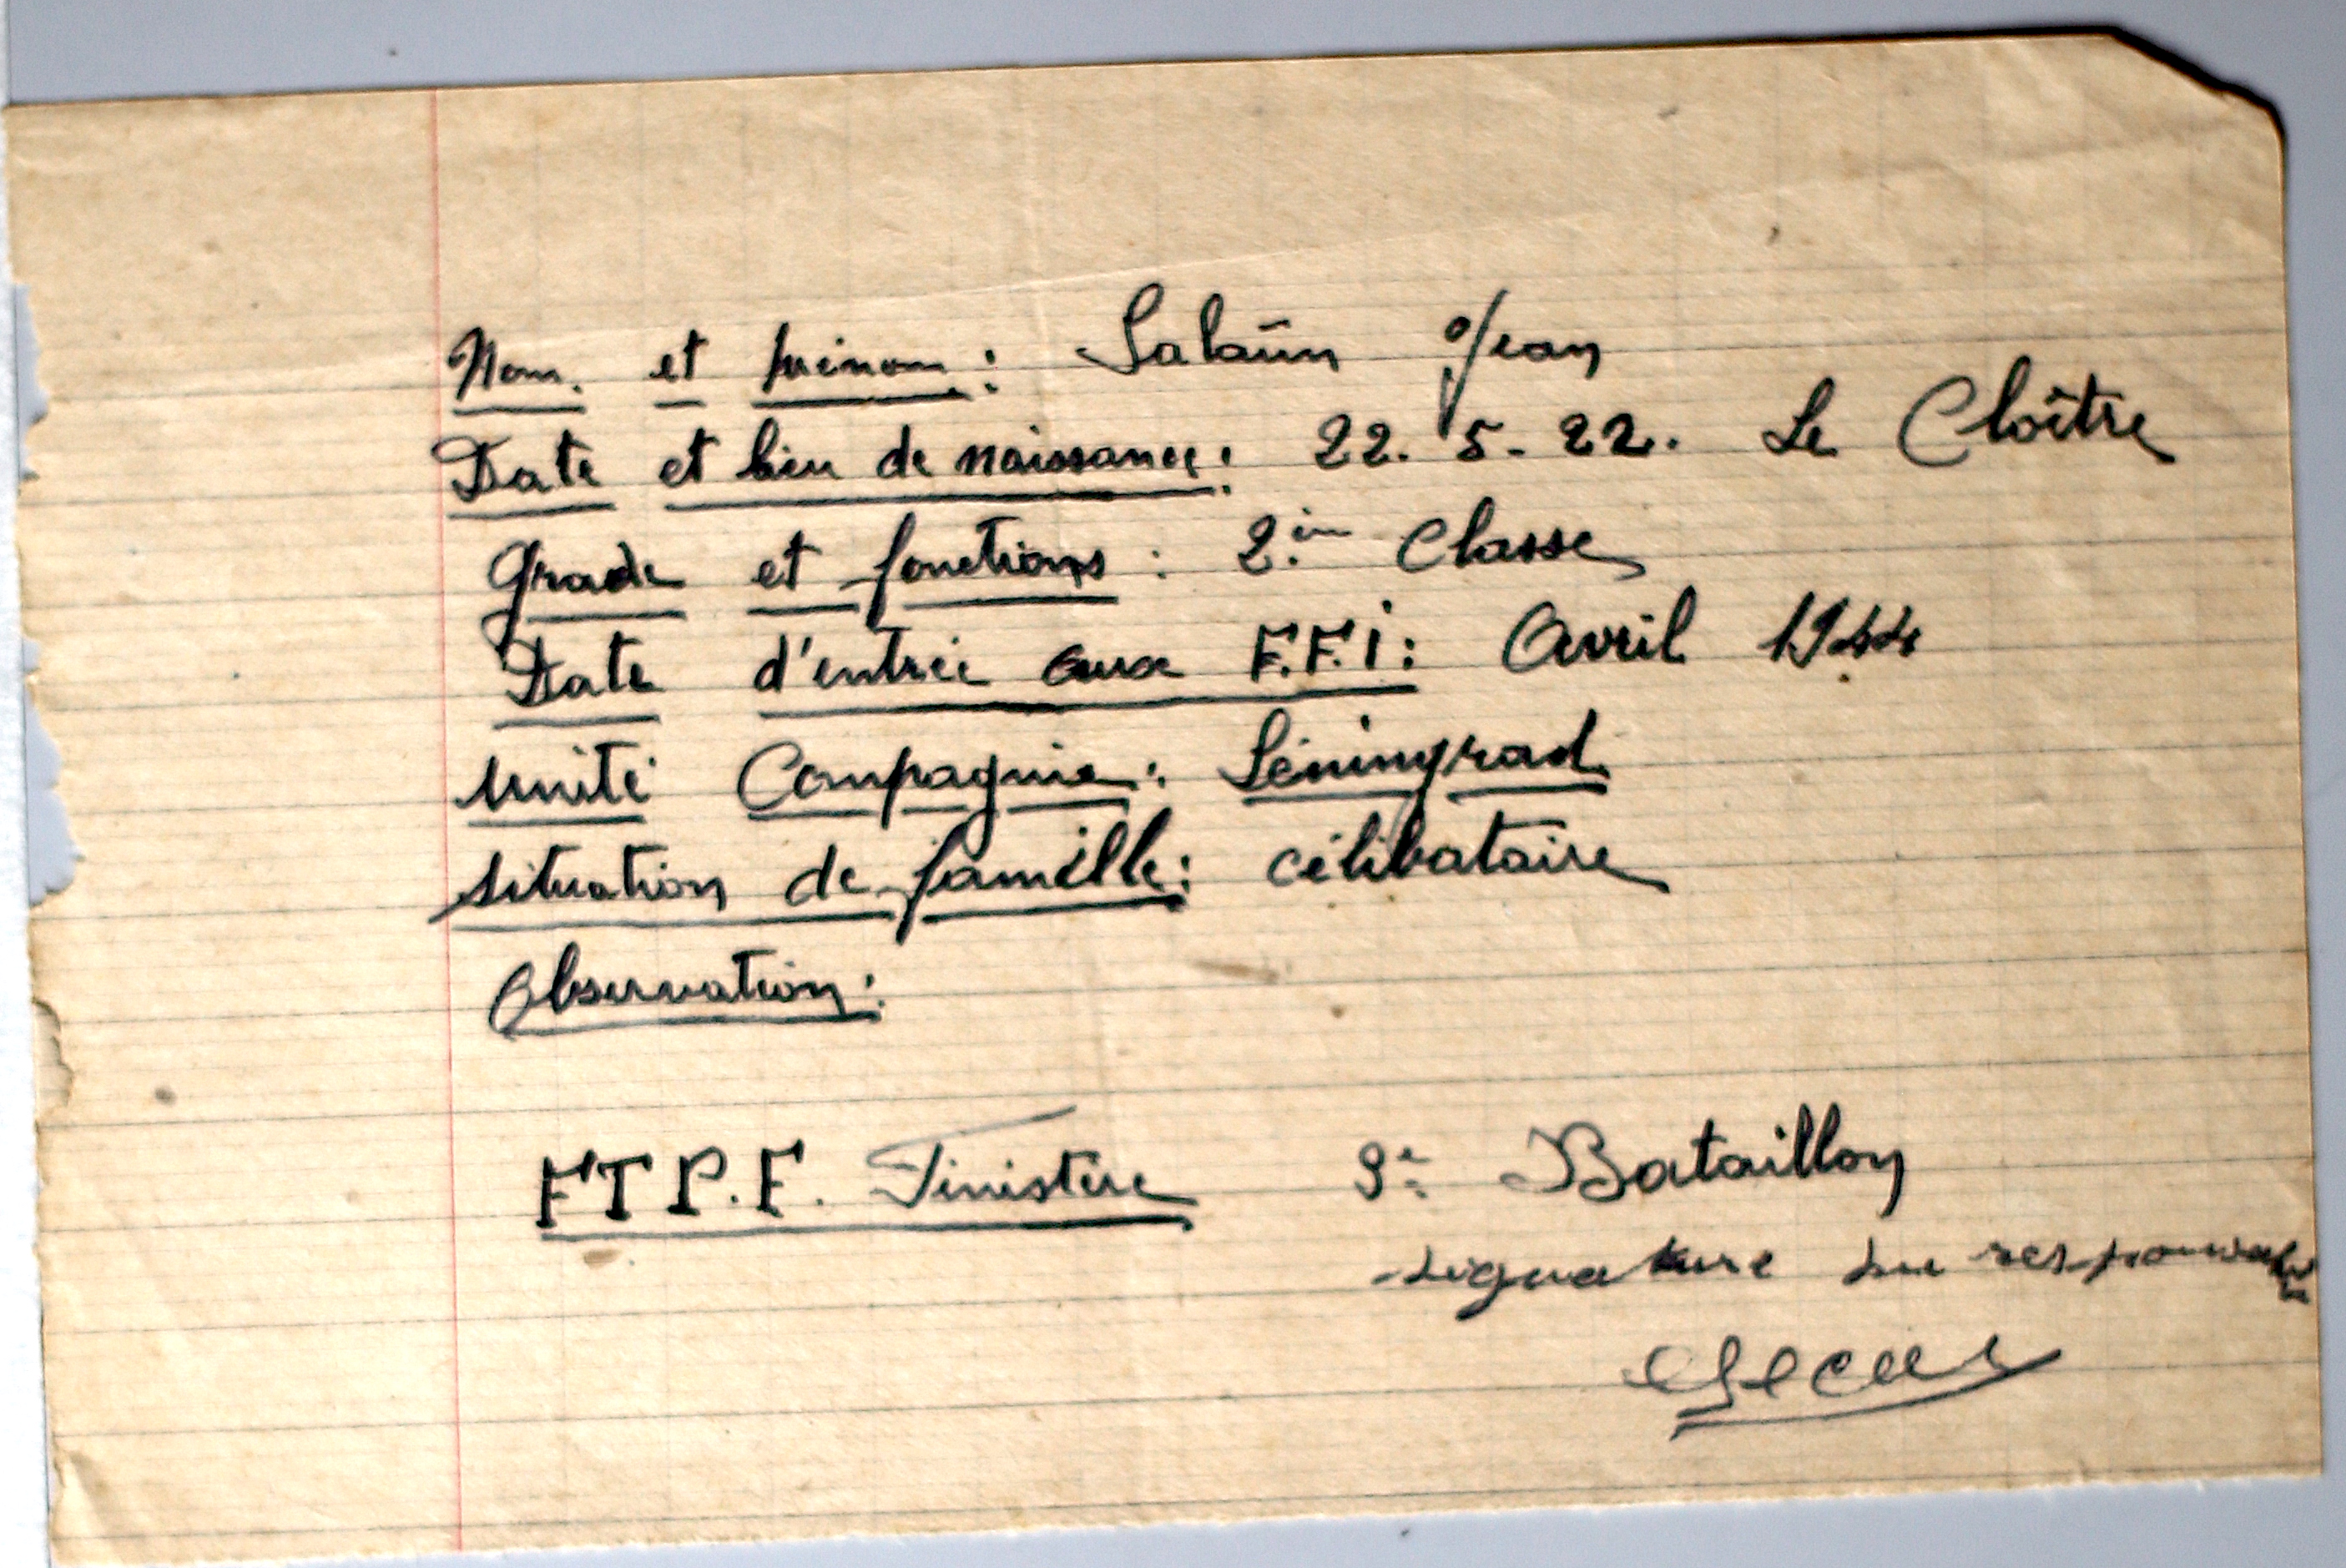 Nom. et prénom : Salaün Jean
Date et lieu de naissance : 22. 5 - 22. Le Cloître
Grade et fonctions : 2.èm Classe
Date d'entrée aux F.F.I : Avril 1944
Unité Compagnie : Léningrad
Situation de famille : célibataire
Observation :
FTP.F. Finistère Bataillon
signature du responsable